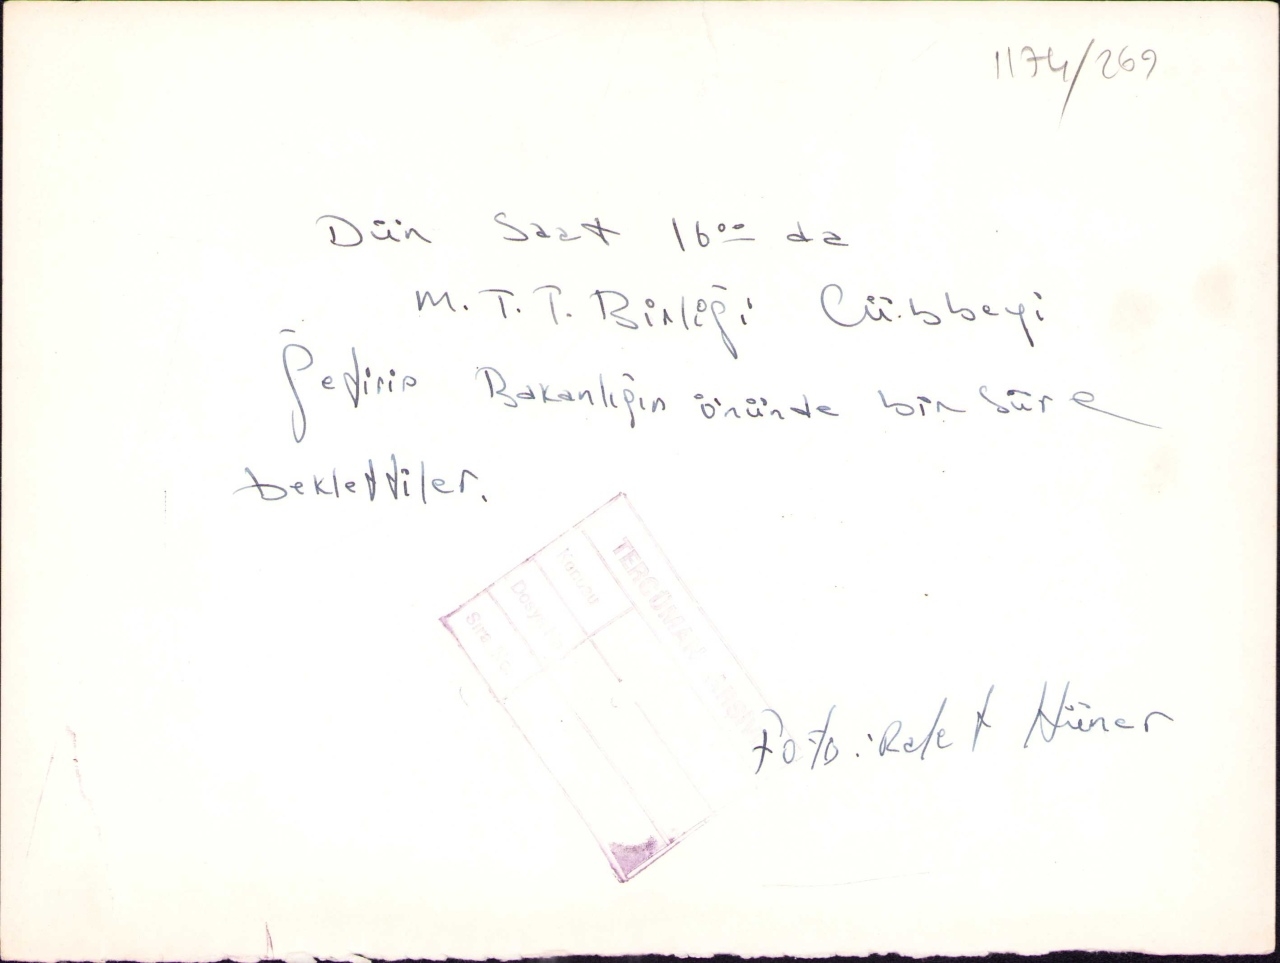 1174/269
Dün Saat 16⁰⁰ da
M. T. T. Birliği Cübbeyi
Getirip Bakanlığın önünde bir Süre
beklettiler.
TERCÜMAN ARŞİVİ
Konusu
Dosya No.
Sıra No.
Foto: Rafet Hüner